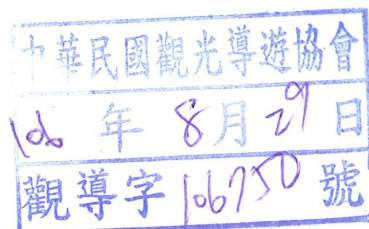 中華民國觀光導遊協會
106 年 8 月 29 日
觀導字 106750 號